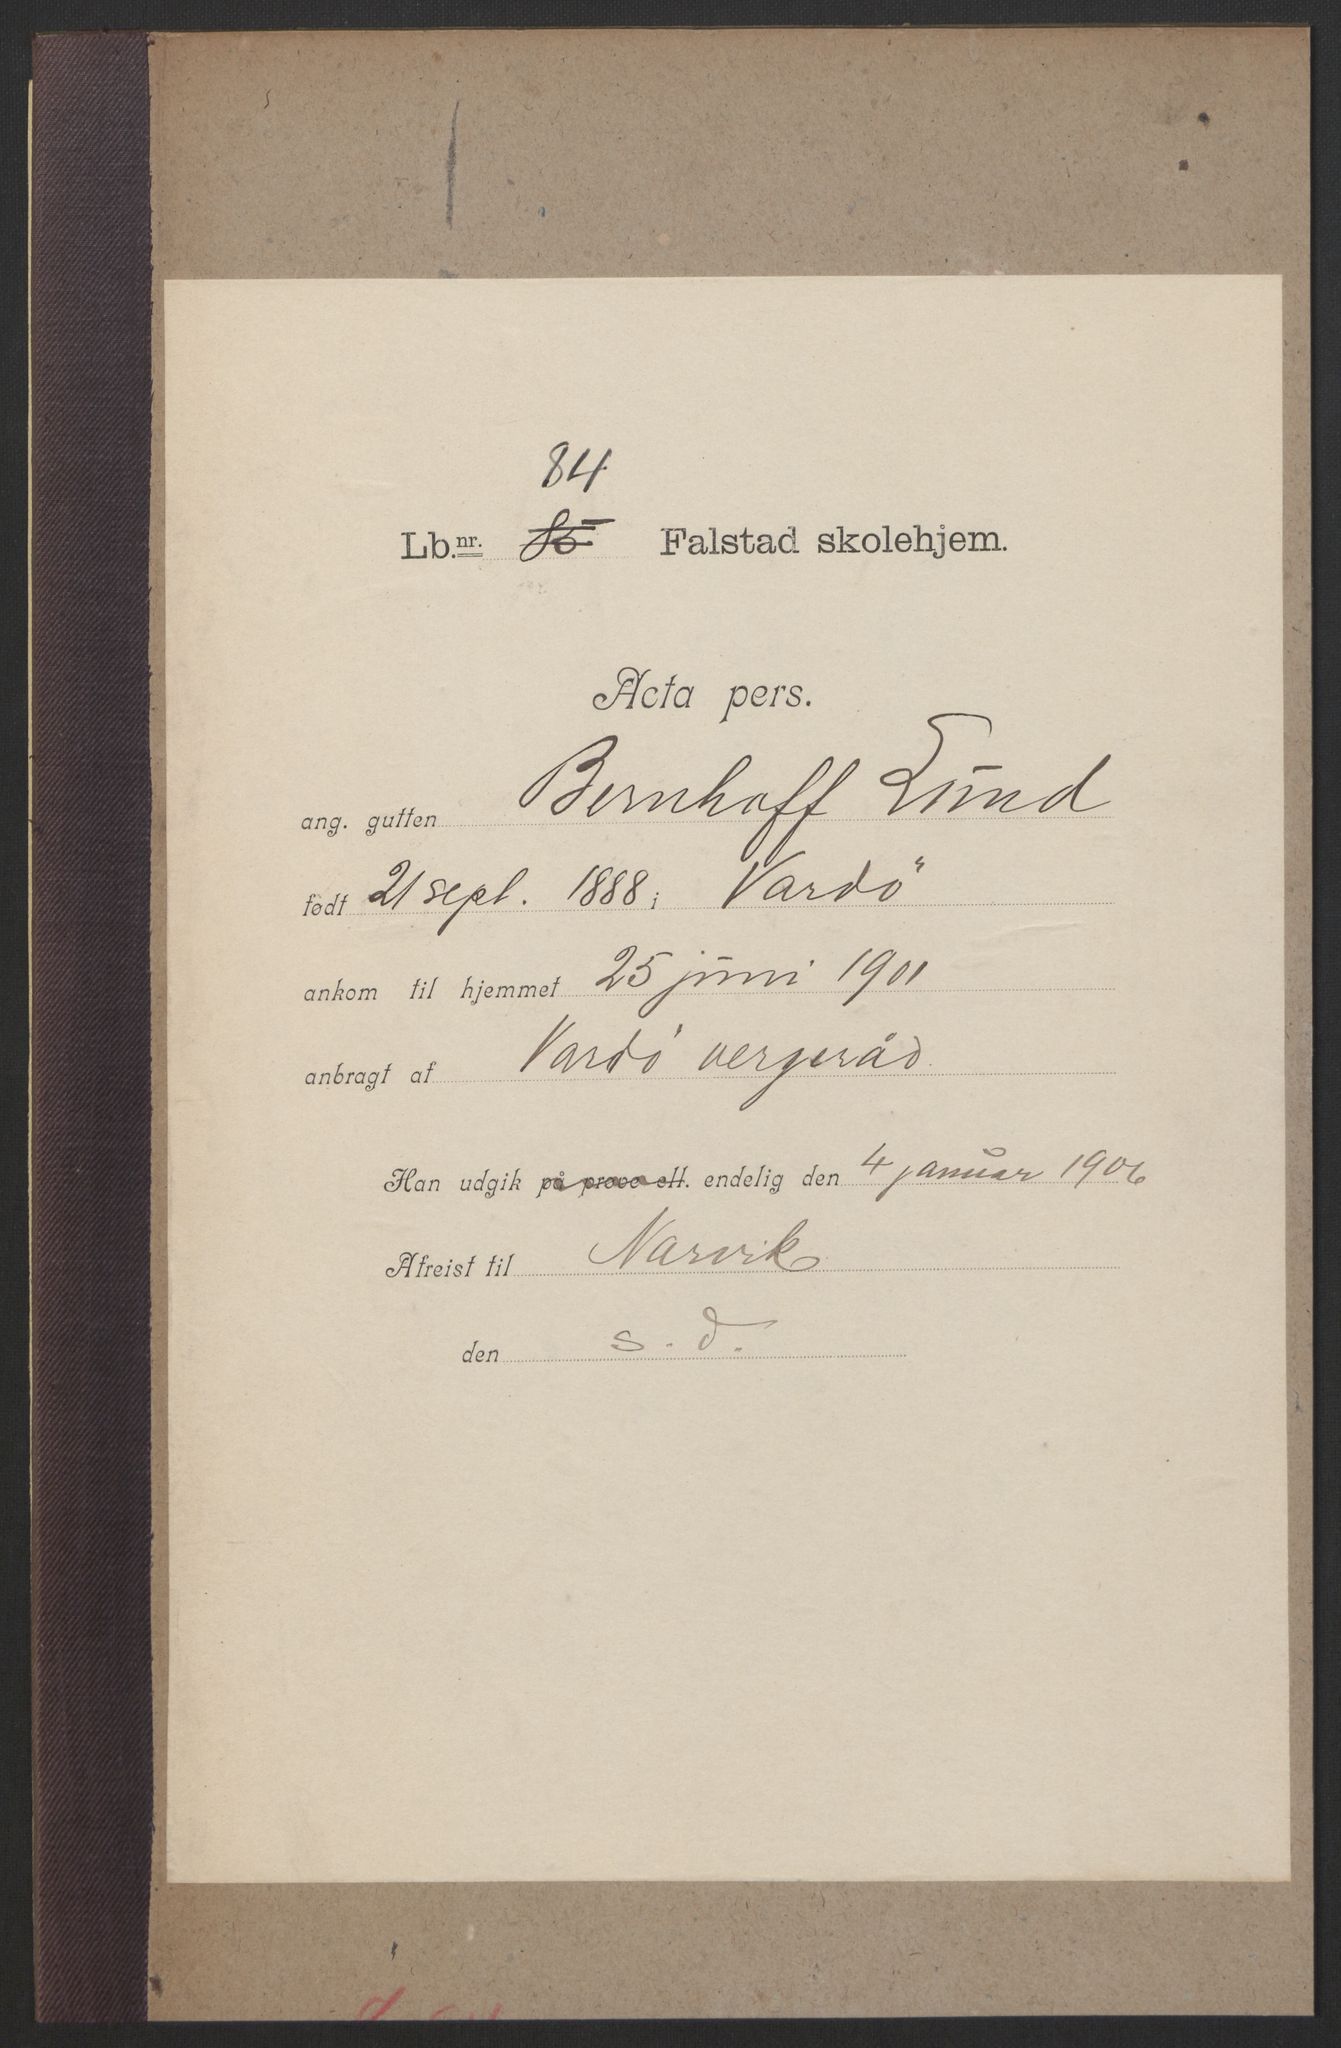 84
Lb.nr. 85 Falstad skolehjem.
Acta pers.
ang. gutten Bernhoff Lund
født 21 sept. 1888 i Vardö
ankom til hjemmet 25 juni 1901
anbragt af Vardö vergeråd
Han udgik på prøve ell. endelig den 4 januar 1906
Afreist til Narvik
den s. d.